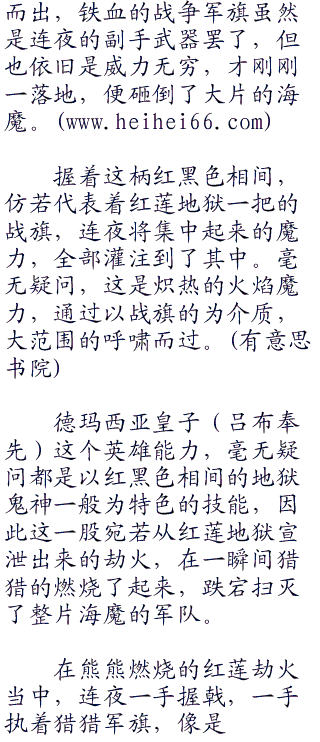 而出，铁血的战争军旗虽然
是连夜的副手武器罢了，但
也依旧是威力无穷，才刚刚
一落地，便砸倒了大片的海
魔。(www.heihei66.com)
握着这柄红黑色相间，
仿若代表着红莲地狱一把的
战旗，连夜将集中起来的魔
力，全部灌注到了其中。毫
无疑问，这是炽热的火焰魔
力，通过以战旗的为介质，
大范围的呼啸而过。(有意思
书院)
德玛西亚皇子（吕布奉
先）这个英雄能力，毫无疑
问都是以红黑色相间的地狱
鬼神一般为特色的技能，因
此这一股宛若从红莲地狱宣
泄出来的劫火，在一瞬间猎
猎的燃烧了起来，跌宕扫灭
了整片海魔的军队。
在熊熊燃烧的红莲劫火
当中，连夜一手握戟，一手
执着猎猎军旗，像是